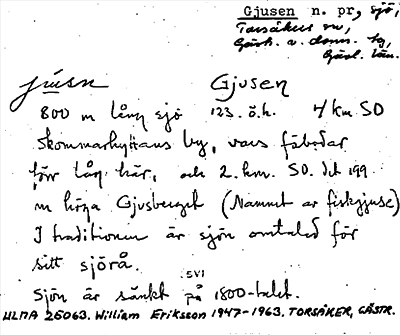 Gjusen n. pr., sjö,
Torsåkers sn,
Gästr. ö. doms. hg,
Gävl. län.
jusn Gjusen
800 m lång sjö 123. ö.h. 4 km SO
Skommarhyttans by, vars fäbodar
förr låg här, och 2. km. SO. det 199
m höga Gjusberget (Namnet av fiskgjuse)
I traditionen är sjön omtalad för
sitt sjörå.
SVI
Sjön är sänkt på 1800-talet.
ULMA 25063. William Eriksson 1947-1963. TORSÅKER, GÄSTR.